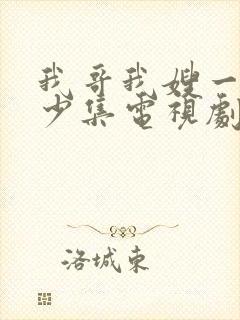 我哥我嫂一
少集電視劇
洛城東